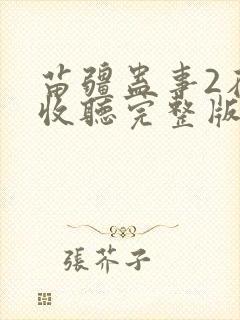 苗疆蛊事2在
收聽完整版
張芥子